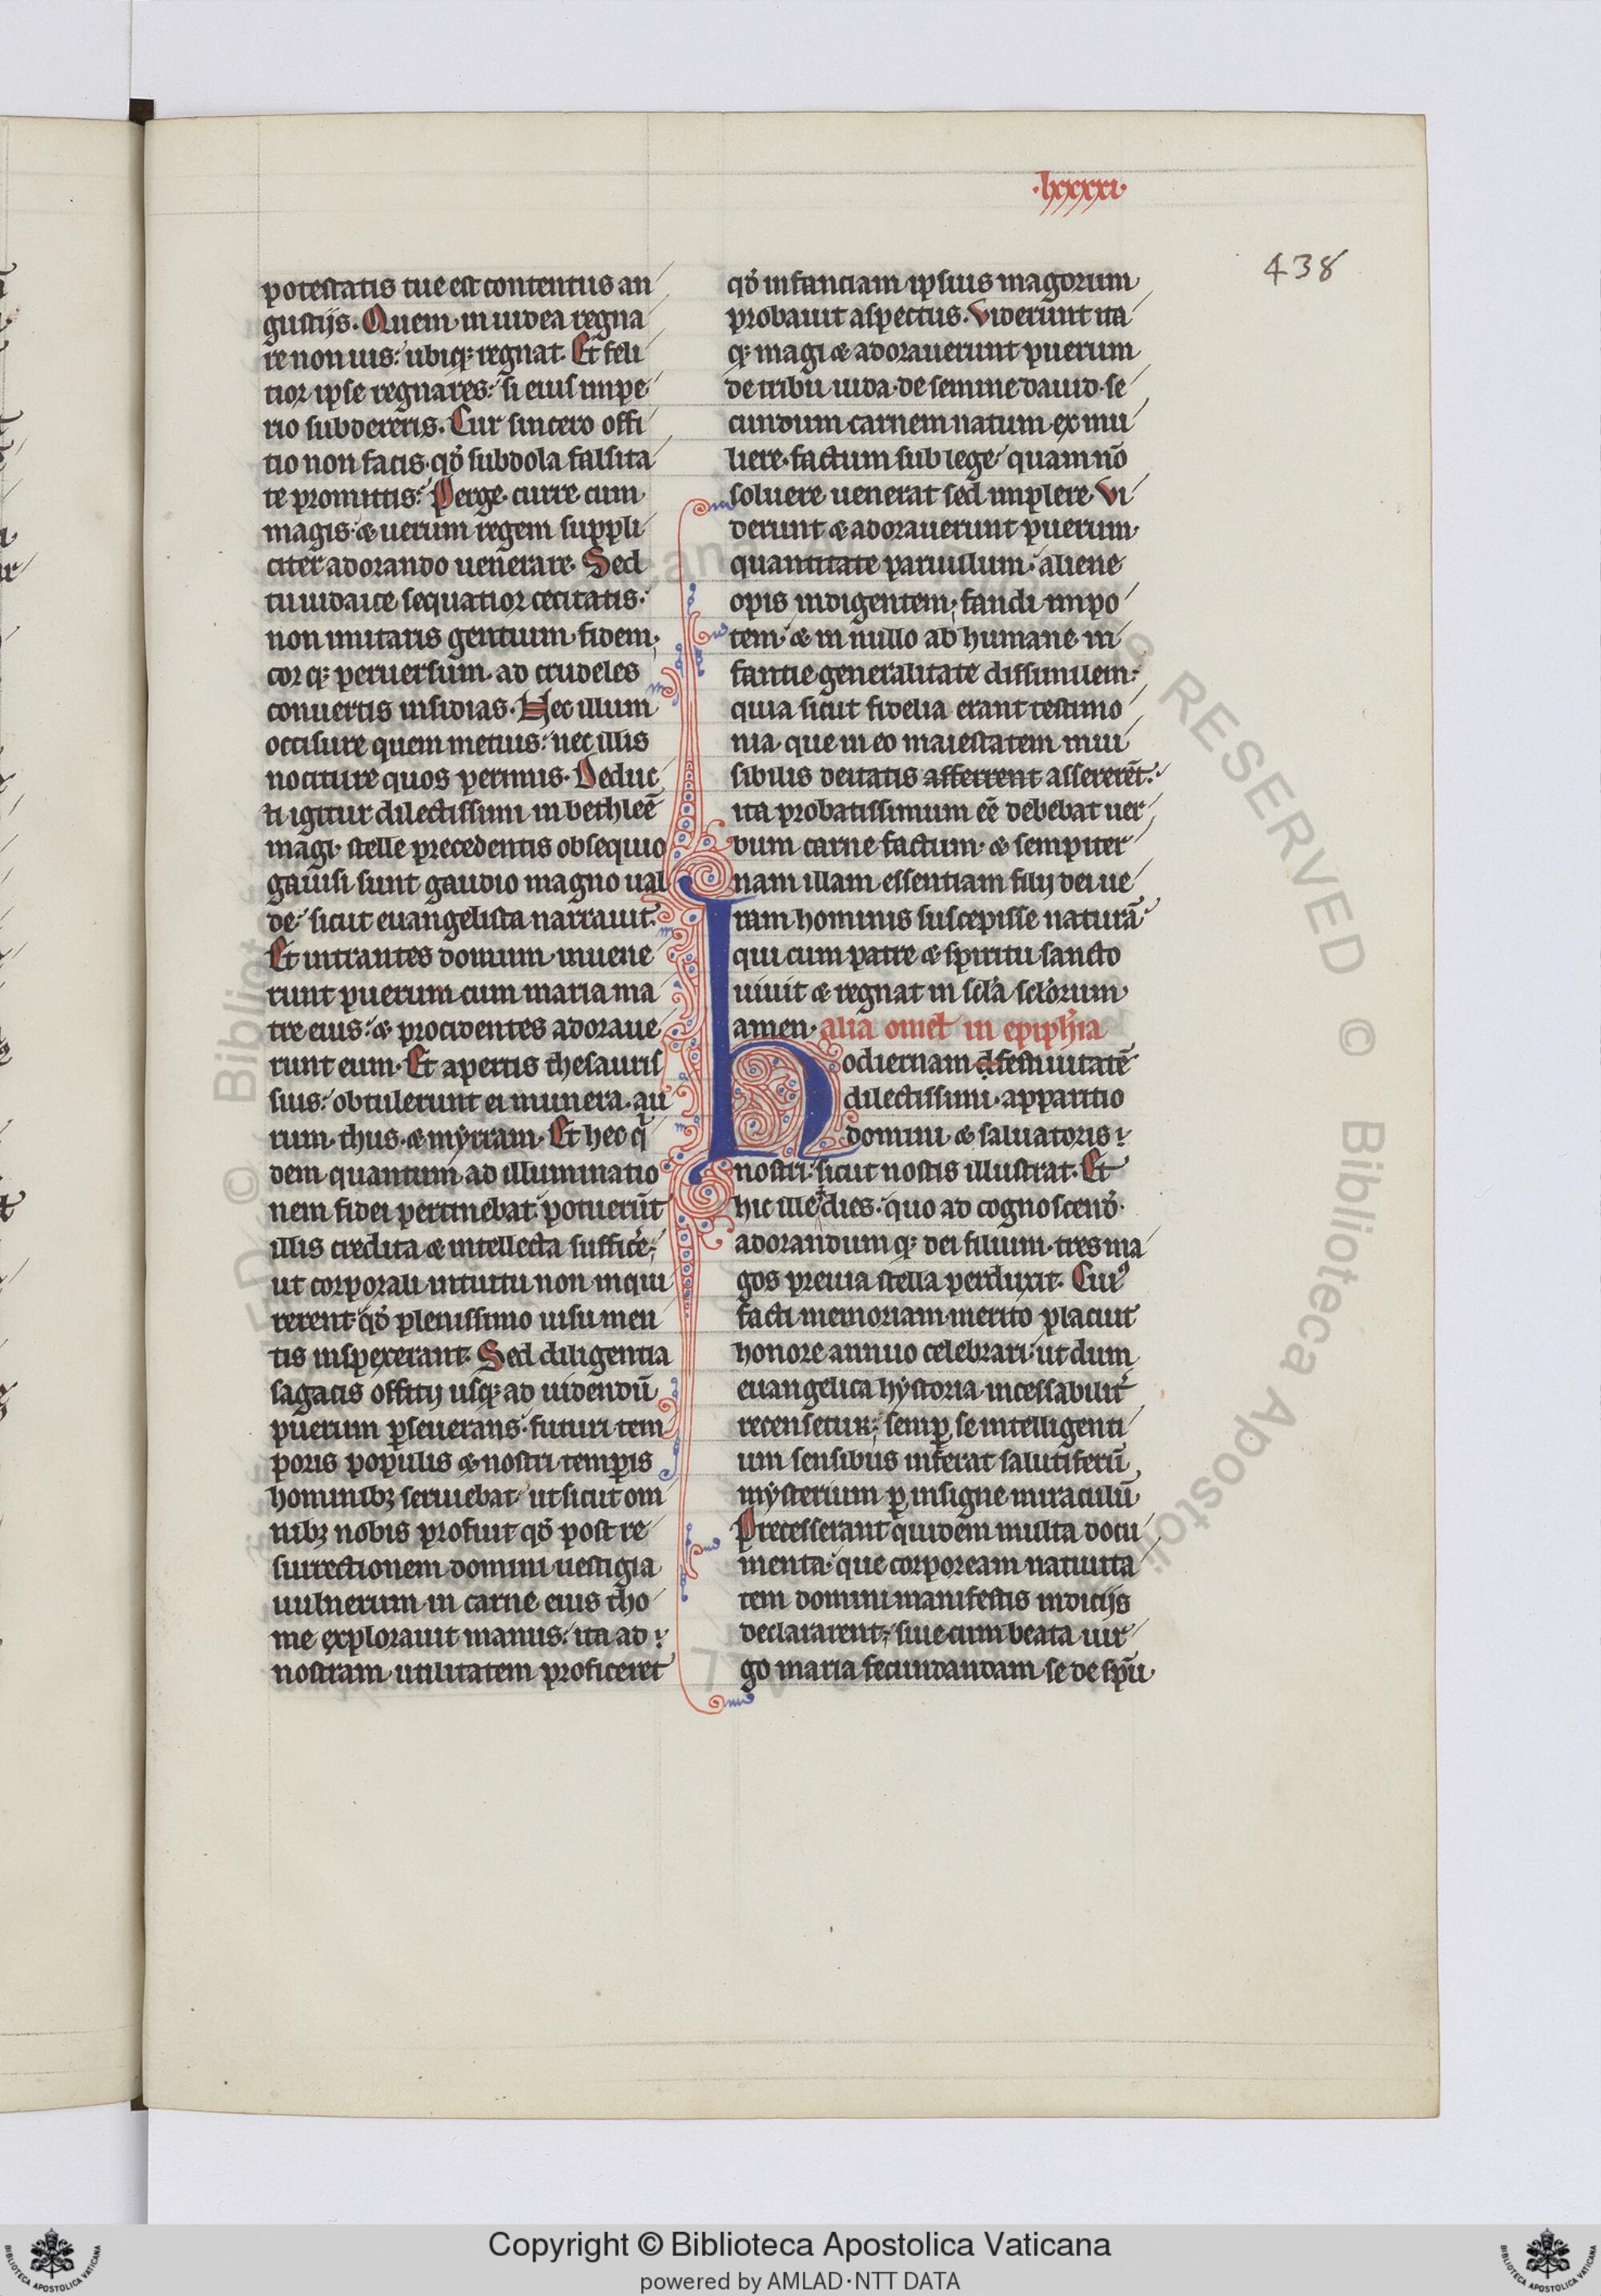 ·lxxxxi·
438
potestatis tue est contentus an
gustijs. Quem in iudea regna
re non uis: ubiq; regnat. Et feli
tior ipse regnares: si eius impe
rio subdereris. Cur sincero offi
tio non facis. qd̓ subdola falsita
te promittis: Perge curre cum
magis: & uerum regem suppli
citer adorando uenerare. Sed
tu iudaice sequatior cecitatis:
non imitaris gentium fidem;
cor q; peruersum. ad crudeles
conuertis insidias. Nec illum
occisure quem metuis: nec illis
nociture quos perimis. Deduc
ti igitur dilectissimi in bethleē
magi. stelle precedentis obsequio
gauisi sunt gaudio magno ual
de: sicut euangelista narrauit.
Et intrantes domum inuene
runt puerum cum maria ma
tre eius: & procidentes adoraue
runt eum. Et apertis thesauris
suis: obtulerunt ei munera. au
rum. thus. & myrram. Et hec qͥ
dem quantum ad illuminatio
nem fidei pertinebat potuerūt
illis credita & intellecta suffice̓;
ut corporali intuitu non inqui
rerent qd̓ plenissimo uisu men
tis inspexerant. Sed diligentia
sagacis offitij usq; ad uidendū
puerum ꝑseuerans. futuri tem
poris populis & nostri temꝑis
hominibꝫ seruiebat. ut sicut om
nibꝫ nobis profuit qd̓ post re
surrectionem domini uestigia
uulnerum in carne eius tho
me explorauit manus: ita ad
nostram utilitatem proficeret
qd̓ infanciam ipsius magorum
probauit aspectus. Viderunt ita
q; magi & adorauerunt puerum
de tribu iuda. de semine dauid. se
cundum carnem natum. ex mu
liere. factum sub lege. quam nō
soluere uenerat sed implere. Vi
derunt & adorauerunt puerum
quantitate paruulum. aliene
opis indigentem; fandi impo
tem. & in nullo ab humane in
fantie generalitate dissimilem:
quia sicut fidelia erant testimo
nia. que in eo maiestatem inui
sibilis deitatis afferrent assererēt:
ita probatissimum eē debebat uer
bum carne factum. & sempiter
nam illam essentiam filij dei ue
ram hominis suscepisse naturā.
qui cum patre & spiritu sancto
uiuit & regnat in sc̄la sc̄lorum
amen. alia omel̓ in epiph̓ia
hodiernam d festiuitatē
dilectissimi. apparitio
domini & saluatoris
nostri. sicut nostis illustrat. Et
hic ille dies. quo ad cognoscend̓.
adorandum q; dei filium. tres ma
gos preuia stella perduxit. Cuiꝰ
facti memoriam merito placuit
honore annuo celebrari: ut dum
euangelica hystoria incessabilit̓
recensetur; semꝑ se intelligenti
um sensibus inferat salutiferū
mysterium ꝑ insigne miraculū
Precesserant quidem multa docu
menta. que corpoream natiuita
tem domini manifestis indicijs
declararent; siue cum beata uir
go maria fecundandam se de sp̄u
Copyright © Biblioteca Apostolica Vaticana
powered by AMLAD·NTT DATA